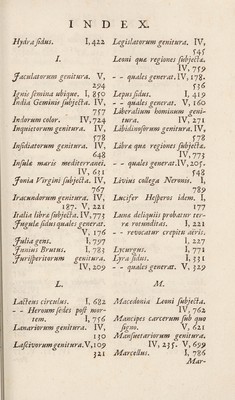 INDEX.
Hydra ſidus. I, 422
I.
Jaculatorum genitura. V,
294
Ignis ſemina ubique. I, 850
India Geminis ſubjecta. IV,
757
Indorum color. IV, 724
Inquietorum genitura. IV,
578
Inſidiatorum genitura. IV,
648
Inſulæ maris mediterranei.
IV, 631
Jonia Virgini ſubjecta. IV,
767
Iracundorum genitura. IV,
187. V, 221
Italia libræ ſubjecta. IV, 773
Jugulæ ſidus quales generat.
V, 176
Julia gens. I, 797
Junius Brutus. I, 783
Juriſperitorum genitura.
IV, 209
L.
Lacteus circulus. I, 682
-- Heroum ſedes poſt mor-
tem. I, 756
Lanariorum genitura. IV,
130
Laſcivorum genitura. V, 109
321
Legislatorum genitura. IV,
545
Leoni quæ regiones ſubjecta.
IV, 759
-- quales generat. IV, 178.
536
Lepus ſidus. I, 419
-- quales generat. V, 160
Liberalium hominum geni-
tura. IV, 271
Libidinoſorum genitura. IV,
Libræ quæ regiones ſubjecta.
IV, 773
-- quales generat. IV, 205.
548
Livius collega Neronis. I,
789
Lucifer Heſperos idem. I,
177
Luna deliquiis probatur ter-
ra rotunditas. I, 221
-- revocatur crepitu æris.
I, 227
Lycurgus. I, 771
Lyra ſidus. I, 331
-- quales generet. V, 329
M.
Macedonia Leoni ſubjecta.
IV, 762
Mancipes carcerum ſub quo
ſigno. V, 621
Manſuetariorum genitura.
IV, 235. V, 699
Marcellus. I, 786
Mar-